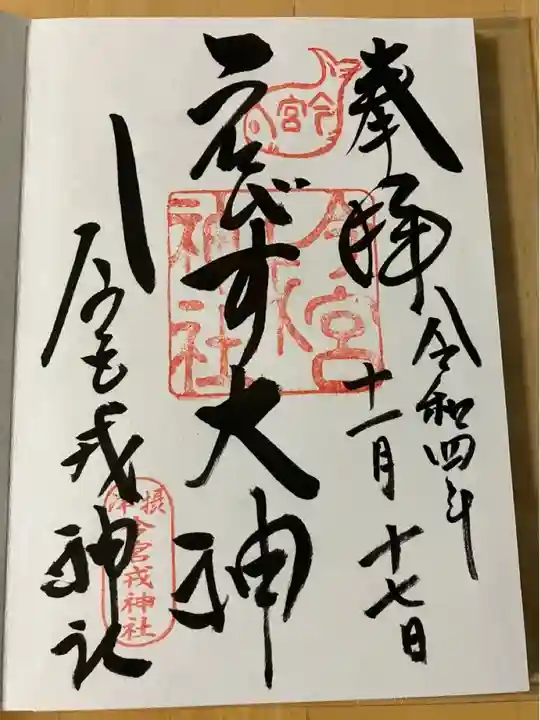 奉拝
令和四年
十一月十七日
今宮
今宮戎神社
ゑびす大神
今宮戎神社
摂津
今宮戎神社